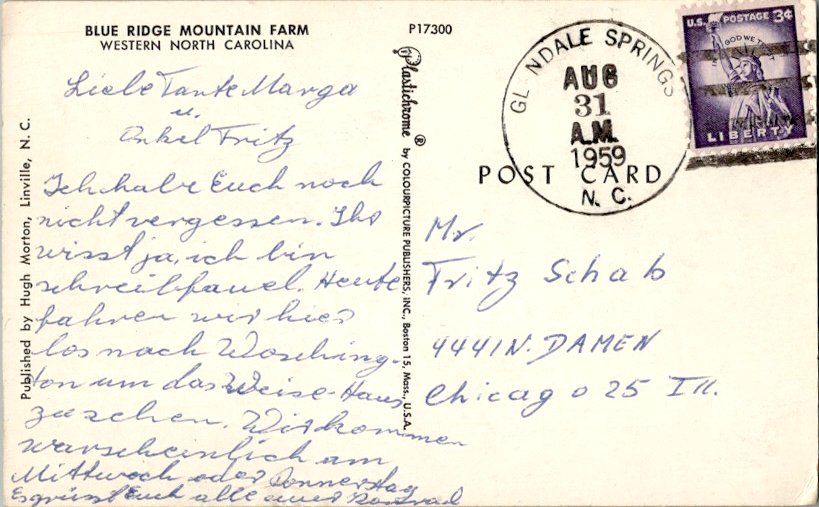 BLUE RIDGE MOUNTAIN FARM
WESTERN NORTH CAROLINA
Liebe Tante Marga
u.
Onkel Fritz
Ich habe Euch noch
nicht vergessen. Ihr
wisst ja, ich bin
schreibfauel. Heute
fahren wir hier
los nach Wosching-
ton um das Weise-Haus
zu sehen. Wir kommen
warscheinlich am
Mittwoch oder Donnerstag
Es grüsst Euch alle euer
Published by Hugh Morton, Linville, N. C.
P17300
Plastichrome ® by COLOURPICTURE PUBLISHERS, INC., Boston 15, Mass., U.S.A.
GLENDALE SPRINGS
AUG
31
A.M.
1959
N. C.
U.S. POSTAGE 3¢
IN GOD WE TRUST
LIBERTY
POST CARD
Mr.
Fritz Schab
4441 N. DAMEN
Chicago 25 Ill.